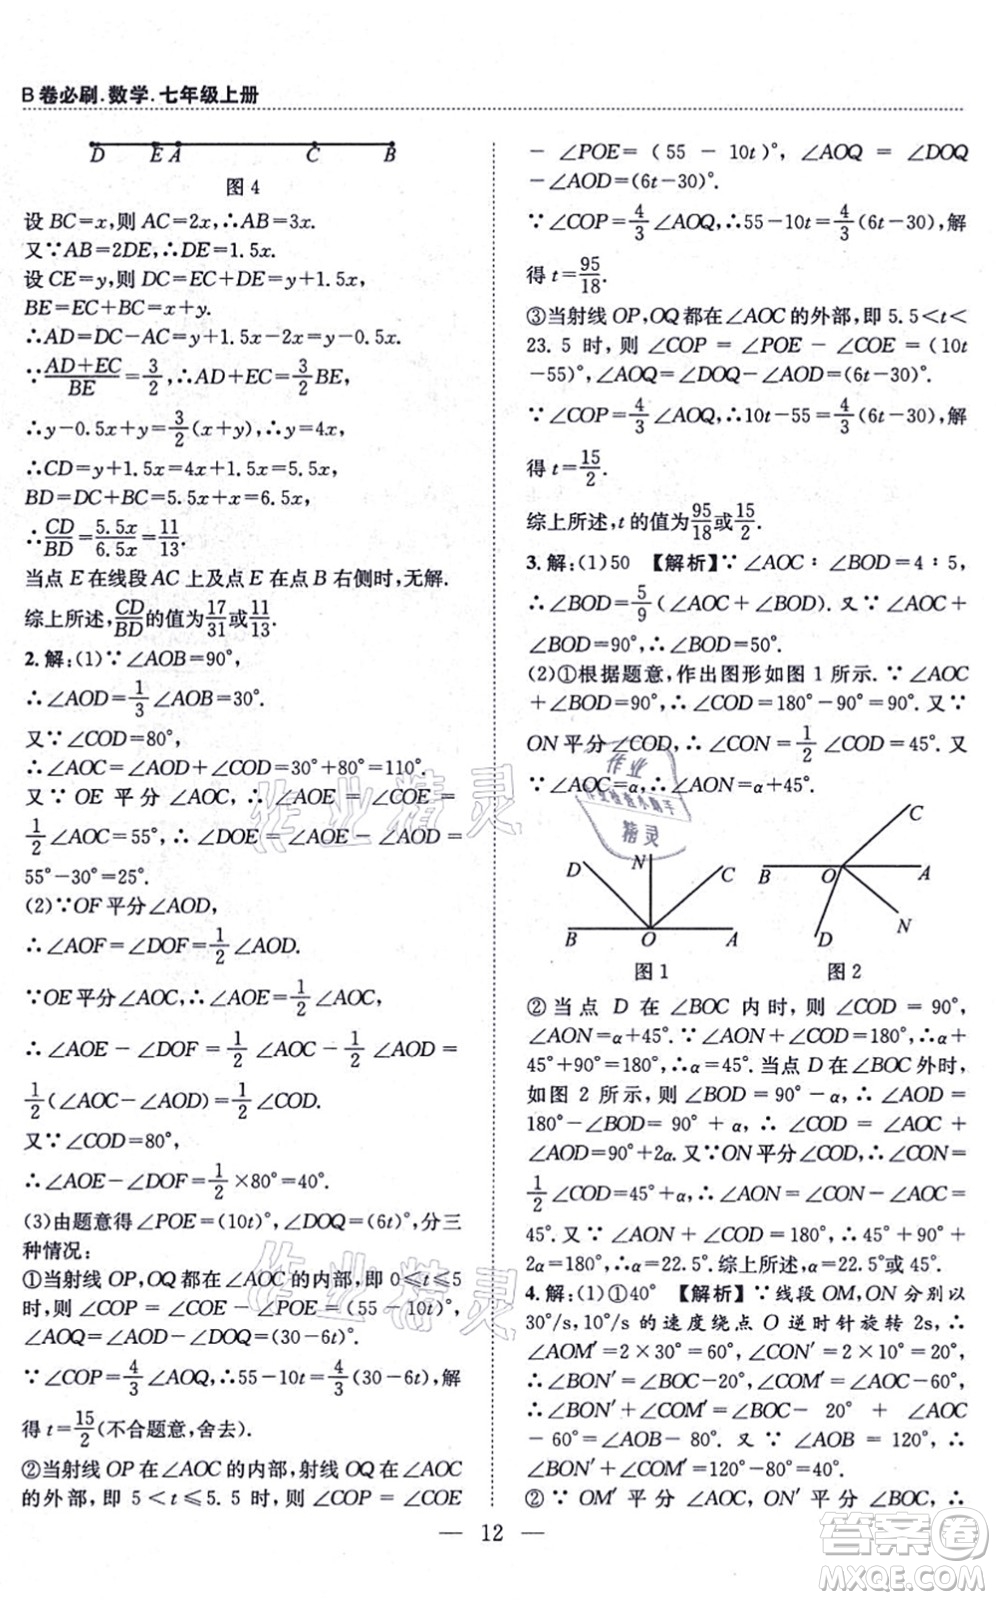 B卷必刷.数学.七年级上册
D E A C B
图4
设 BC=x,则 AC=2x,∴AB=3x.
又∵AB=2DE,∴DE=1.5x.
设 CE=y,则 DC=EC+DE=y+1.5x,
BE=EC+BC=x+y.
∴AD=DC-AC=y+1.5x-2x=y-0.5x.
∵(AD+EC)/BE=3/2,∴AD+EC=3/2BE,
∴y-0.5x=3/2(x+y),∴y=4x,
∴CD=y+1.5x=5.5x,
BD=DC+BC=5.5x+x=6.5x,
∴CD/BD=5.5x/6.5x=11/13.
当点 E 在线段 AC 上及点 E 在点 B 右侧时,无解.
综上所述,CD/BD的值为17/31或11/13.
2.解:(1)∵∠AOB=90°,
∴∠AOD=1/3∠AOB=30°.
又∵∠COD=80°,
∴∠AOC=∠AOD+∠COD=30°+80°=110°.
又∵OE 平分∠AOC,∴∠AOE=∠COE=
1/2∠AOC=55°,∴∠DOE=∠AOE-∠AOD=
55°-30°=25°.
(2)∵OF平分∠AOD,
∴∠AOF=∠DOF=1/2∠AOD.
∵OE平分∠AOC,∴∠AOE=1/2∠AOC,
∴∠AOE-∠DOF=1/2∠AOC-1/2∠AOD=
1/2(∠AOC-∠AOD)=1/2∠COD.
又∵∠COD=80°,
∴∠AOE-∠DOF=1/2×80°=40°.
(3)由题意得∠POE=(10t)°,∠DOQ=(6t)°,分三
种情况:
①当射线 OP,OQ都在∠AOC的内部,即 0≤t≤5
时,则∠COP=∠COE-∠POE=(55-10t)°,
∠AOQ=∠AOD-∠DOQ=(30-6t)°.
∵∠COP=4/3∠AOQ,∴55-10t=4/3(30-6t),解
得 t=15/2(不合题意,舍去).
②当射线 OP 在∠AOC 的内部,射线 OQ 在∠AOC
的外部,即 5<t≤5.5 时,则∠COP=∠COE
-∠POE=(55-10t)°,∠AOQ=∠DOQ
-∠AOD=(6t-30)°.
∵∠COP=4/3∠AOQ,∴55-10t=4/3(6t-30),解
得 t=95/18.
③当射线 OP,OQ都在∠AOC的外部,即 5.5<t<
23.5 时,则∠COP=∠POE-∠COE=(10t
-55)°,∠AOQ=∠DOQ-∠AOD=(6t-30)°.
∵∠COP=4/3∠AOQ,∴10t-55=4/3(6t-30),解
得 t=15/2.
综上所述,t 的值为95/18或15/2.
3.解:(1)50 【解析】∵∠AOC∶∠BOD=4∶5,
∴∠BOD=5/9(∠AOC+∠BOD).又∵∠AOC+
∠BOD=90°,∴∠BOD=50°.
(2)①根据题意,作出图形如图 1 所示.∵∠AOC
+∠BOD=90°,∴∠COD=180°-90°=90°.又∵
ON平分∠COD,∴∠CON=1/2∠COD=45°.又
∵∠AOC=α,∴∠AON=α+45°.
D N C B O A
图1
C B O A N D
图2
②当点 D 在∠BOC 内时,则∠COD=90°,
∠AON=α+45°.∵∠AON+∠COD=180°,∴α+
45°+90°=180°,∴α=45°.当点 D 在∠BOC外时,
如图 2 所示,则∠BOD=90°-α,∴∠AOD=
180°-∠BOD=90°+α,∴∠COD=∠AOC+
∠AOD=90°+2α.又∵ON平分∠COD,∴∠CON=
1/2∠COD=45°+α,∴∠AON=∠CON-∠AOC=
45°.又∵∠AON+∠COD=180°,∴45°+90°+
2α=180°,∴α=22.5°.综上所述,α=22.5°或 45°.
4.解:(1)①40° 【解析】∵线段 OM,ON 分别以
30°/s,10°/s 的速度绕点 O 逆时针旋转 2s,∴
∠AOM′=2×30°=60°,∠CON′=2×10°=20°,
∴∠BON′=∠BOC-20°,∠COM′=∠AOC-60°,
∴∠BON′+∠COM′=∠BOC-20°+∠AOC
-60°=∠AOB-80°.又∵∠AOB=120°,∴
∠BON′+∠COM′=120°-80°=40°.
②∵OM′平分∠AOC,ON′平分∠BOC,∴
— 12 —
作业精灵
作业精灵
作业
作业检查小助手
精灵
答案卷
MXQE.COM